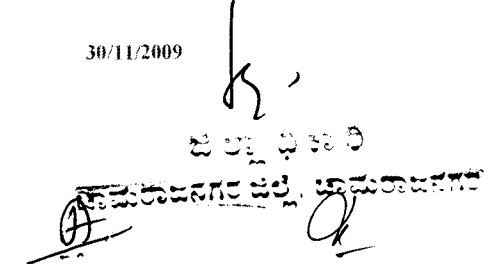 30/11/2009
ಜಿಲ್ಲಾಧಿಕಾರಿ
ಚಾಮರಾಜನಗರ ಜಿಲ್ಲೆ, ಚಾಮರಾಜನಗರ